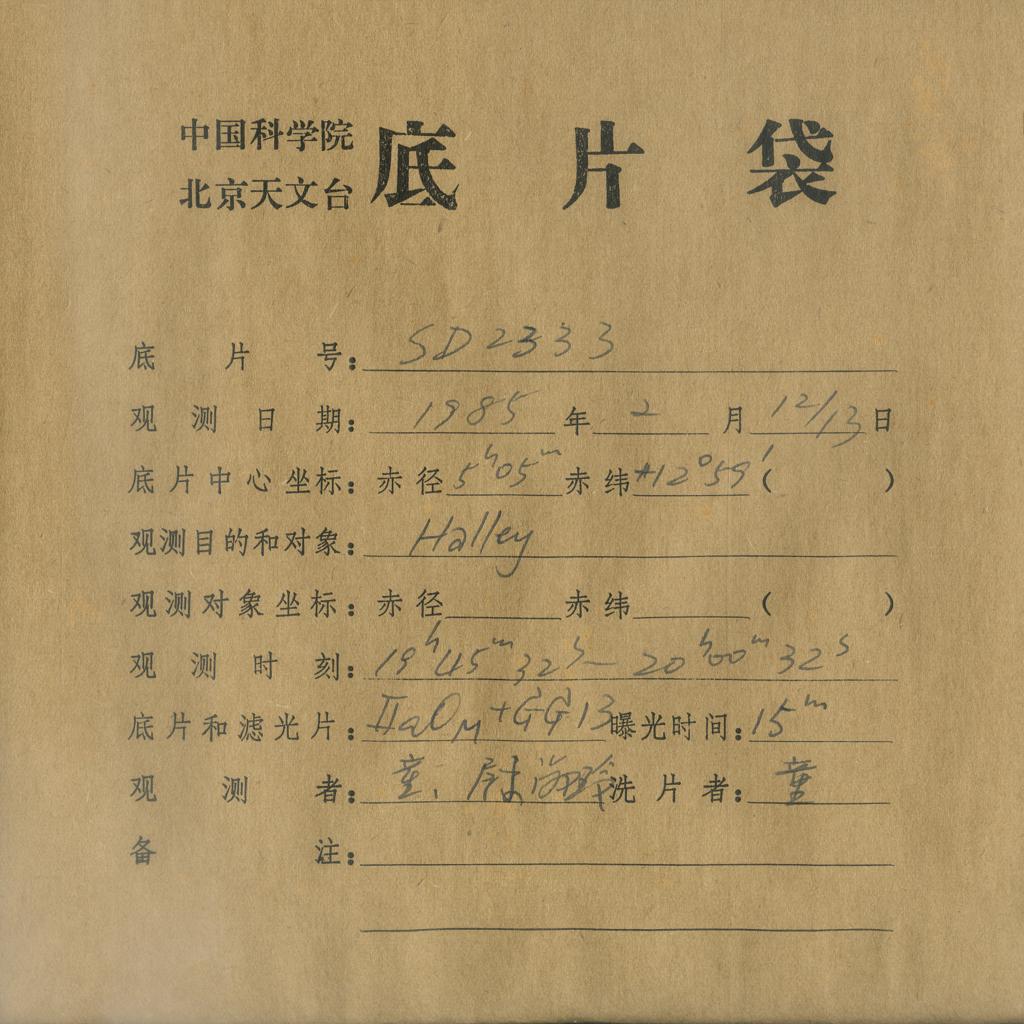 中国科学院
北京天文台
底片袋
底片号: SD2333
观测日期: 1985年2月12/13日
底片中心坐标: 赤径 5h05m 赤纬 +12°59′ ( )
观测目的和对象: Halley
观测对象坐标: 赤径 赤纬 ( )
观测时刻: 19h45m32s—20h00m32s
底片和滤光片: IIaOM+GG13 曝光时间: 15m
观测者: 童、 洗片者: 童
备注: